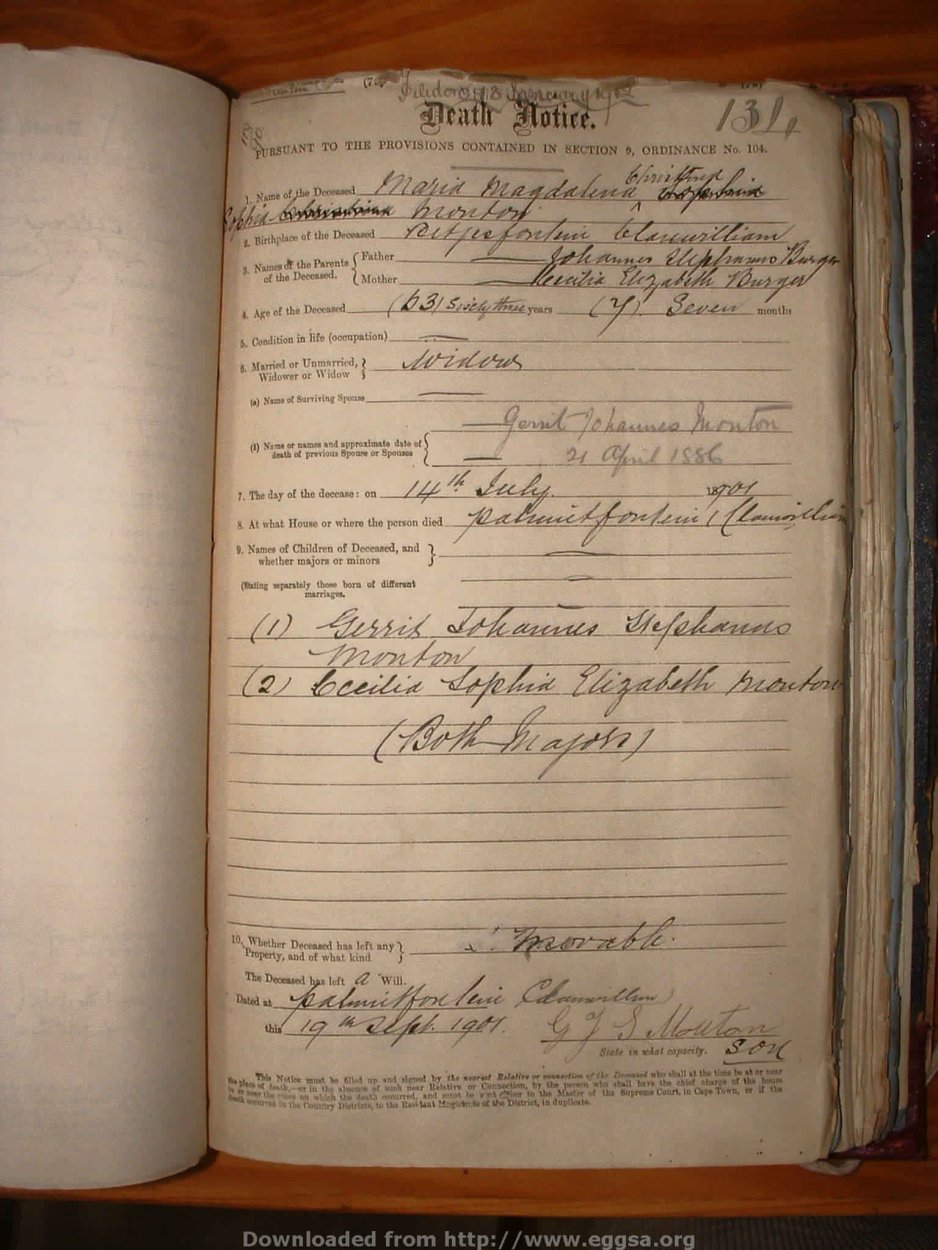 Filed on 18 January 1902
Death Notice.
131,
PURSUANT TO THE PROVISIONS CONTAINED IN SECTION 9, ORDINANCE No. 104.
1. Name of the Deceased Maria Magdalena
Sophia Mouton
2. Birthplace of the Deceased Rietfontein Clanwilliam
3. Names of the Parents of the Deceased. { Father Johannes Stephanus Burger
Mother Cecilia Elizabeth Burger
4. Age of the Deceased (63) Sixty three years (7) Seven months
5. Condition in life (occupation) —
6. Married or Unmarried, Widower or Widow } Widow
(a) Name of Surviving Spouse —
(b) Name or names and approximate date of death of previous Spouse or Spouses { Gerrit Johannes Mouton
21 April 1886
7. The day of the decease: on 14th July 1901
8. At what House or where the person died Palmietfontein, Clanwilliam
9. Names of Children of Deceased, and whether majors or minors } —
(Stating separately those born of different marriages. —
(1) Gerrit Johannes Stephanus
Mouton
(2) Cecilia Sophia Elizabeth Mouton
(Both Majors)
10. Whether Deceased has left any Property, and of what kind } Movable.
The Deceased has left a Will.
Dated at Palmietfontein Clanwilliam
this 19th Sept. 1901. G J S Mouton
State in what capacity. Son
This Notice must be filled up and signed by the nearest Relative or connection of the Deceased who shall at the time be at or near
the place of death,—or in the absence of such near Relative or Connection, by the person who shall have the chief charge of the house
in or near the place on which the death occurred, and must be sent either to the Master of the Supreme Court, in Cape Town, or if the
death occurred in the Country Districts, to the Resident Magistrate of the District, in duplicate.
Downloaded from http://www.eggsa.org